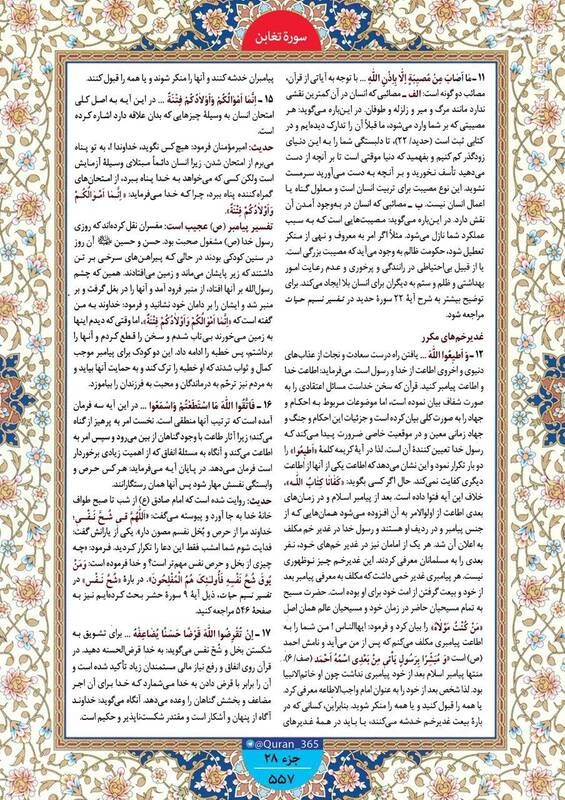 سورة تغابن
۱۱ ـ مَا أَصَابَ مِن مُّصِيبَةٍ إِلَّا بِإِذْنِ اللَّهِ ... با توجه به آیاتی از قرآن،
مصائب دو گونه است: الف ـ مصائبی که انسان در آن کمترین نقشی
ندارد مانند مرگ و میر و زلزله و طوفان. در این‌باره می‌گوید: هر
مصیبتی که بر شما وارد می‌شود، ما قبلاً آن را تدارک دیده‌ایم و در
کتابی ثبت است (حدید/ ۲۲)، تا دلبستگی شما را به این دنیای
زودگذر کم کنیم و بفهمید که دنیا موقتی است تا بر آنچه از دست
می‌دهید تأسف نخورید و بر آنچه به دست می‌آورید سرمست
نشوید. این نوع مصیبت برای تربیت انسان است و معلول گناه یا
اعمال انسان نیست. ب ـ مصائبی که انسان در به‌وجود آمدن آن
نقش دارد. در این‌باره می‌گوید: مصیبت‌هایی است که به سبب
عملکرد شما نازل می‌شود. مثلاً اگر امر به معروف و نهی از منکر
تعطیل شود، حکومت ظالم به وجود می‌آید که مصیبت بزرگی است.
یا از قبیل بی‌احتیاطی در رانندگی و پرخوری و عدم رعایت امور
بهداشتی و ظلم و ستم به دیگران برای انسان بلا ایجاد می‌کند. برای
توضیح بیشتر به شرح آیهٔ ۲۲ سورهٔ حدید در تفسیر نسیم حیات
مراجعه شود.
غدیرخم‌های مکرر
۱۲ ـ وَ أَطِيعُوا اللَّهَ ... یافتن راه درست سعادت و نجات از عذاب‌های
دنیوی و اخروی اطاعت از خدا و رسول است. می‌فرماید: اطاعت خدا
و اطاعت پیامبر کنید. قرآن که سخن خداست مسائل اعتقادی را به
صورت شفاف بیان نموده است، اما موضوعات مربوط به احکام و
جهاد را به صورت کلی بیان کرده است و جزئیات این احکام و جنگ و
جهاد زمانی معین و در موقعیت خاصی ضرورت پیدا می‌کند که
رسول خدا تعیین کنندهٔ آن است. لذا در آیهٔ کریمه کلمهٔ «أَطِيعُوا» را
دو بار تکرار نمود و این نشان می‌دهد که اطاعت یکی از آنها از اطاعت
دیگری کفایت نمی‌کند. حال اگر کسی بگوید: «کَفَانَا کِتَابُ اللَّه»،
خلاف این آیه فتوا داده است. بعد از پیامبر اسلام و در زمان‌های
بعدی اطاعت از اولوالامر به آن افزوده می‌شود همان‌هایی که از
جنس پیامبر و در ردیف او هستند و رسول خدا در غدیر خم مکلف
به اعلان آن شد. هر یک از امامان نیز در غدیر خم‌های خود، نفر
بعدی را به مسلمانان معرفی کردند. این غدیرخم چیز نوظهوری
نیست. هر پیامبری غدیر خمی داشت که مکلف به معرفی پیامبر بعد
از خود و بیعت گرفتن از امت خود برای او بوده است. حضرت مسیح
به تمام مسیحیان حاضر در زمان خود و مسیحیان عالم همان اصل
«مَنْ كُنْتُ مَوْلَاهُ» را بیان کرد و فرمود: ایهاالناس! من شما را به
اطاعت پیامبری مکلف می‌کنم که پس از من می‌آید و نامش احمد
(ص) است «وَ مُبَشِّرًا بِرَسُولٍ يَأْتِي مِنْ بَعْدِي اسْمُهُ أَحْمَدُ» (صف/۶).
منتها پیامبر اسلام بعد از خود پیامبری نداشت چون او خاتم‌الانبیا
بود. لذا شخص بعد از خود را به عنوان امام واجب‌الاطاعه معرفی کرد.
یا همه را قبول کنید و یا همه را منکر شوید. بنابراین، کسانی که در
بارهٔ بیعت غدیرخم خدشه می‌کنند، یا باید در همهٔ غدیرهای
پیامبران خدشه کنند و آنها را منکر شوند و یا همه را قبول کنند.
۱۵ ـ إِنَّمَا أَمْوَالُكُمْ وَأَوْلَادُكُمْ فِتْنَةٌ ... در این آیه به اصل کلی
امتحان انسان به وسیلهٔ چیزهایی که بدان علاقه دارد اشاره کرده
است.
حدیث: امیرمؤمنان فرمود: هیچ کس نگوید، خداوندا، به تو پناه
می‌برم از امتحان شدن. زیرا انسان دائماً مبتلای وسیلهٔ آزمایش
است ولکن کسی که می‌خواهد به خدا پناه ببرد، از امتحان‌های
گمراه‌کننده پناه ببرد، چرا که خدا می‌فرماید: «إِنَّمَا أَمْوَالُكُمْ
وَأَوْلَادُكُمْ فِتْنَةٌ».
تفسیر پیامبر (ص) عجیب است: مفسران نقل کرده‌اند که روزی
رسول خدا (ص) مشغول صحبت بود. حسن و حسین آن روز
در سنین کودکی بودند در حالی که پیراهن‌های سرخی بر تن
داشتند که زیر پایشان می‌ماند و زمین می‌افتادند. همین که چشم
رسول‌الله بر آنها افتاد، از منبر فرود آمد و آنها را در بغل گرفت و بر
منبر شد و ایشان را بر دامان خود نشانید و فرمود: خداوند به من
گفته است که «إِنَّمَا أَمْوَالُكُمْ وَأَوْلَادُكُمْ فِتْنَةٌ»، اما وقتی که دیدم اینها
به زمین می‌خورند بی‌تاب شدم و سخن را قطع کردم و آنها را
برداشتم، پس خطبه را ادامه داد. این دو کودک برای پیامبر موجب
کمال و ثواب شدند که او خطبه را ترک کند و به حمایت آنها بیاید و
به مردم نیز ترحّم به درماندگان و محبت به فرزندان را بیاموزد.
۱۶ ـ فَاتَّقُوا اللَّهَ مَا اسْتَطَعْتُمْ وَاسْمَعُوا ... در این آیه سه فرمان
آمده است که ترتیب آنها منطقی است. نخست امر به پرهیز از گناه
می‌کند؛ زیرا آثار طاعت با وجود گناهان از بین می‌رود و سپس امر به
اطاعت می‌کند و آنگاه به مسئلهٔ انفاق که از اهمیت زیادی برخوردار
است فرمان می‌دهد. در پایان آیه می‌فرماید: هر کس حرص و
وابستگی نفسش مهار شود پس آنها همان رستگارانند.
حدیث: روایت شده است که امام صادق (ع) از شب تا صبح طواف
خانهٔ خدا به جا آورد و پیوسته می‌گفت: «اَللَّهُمَّ قِنِي شُحَّ نَفْسِي،
خداوند مرا از حرص و بُخل نفسم مصون دار». یکی از یارانش گفت:
فدایت شوم شما امشب فقط این دعا را تکرار کردید. فرمود: «چه
چیزی از بخل و حرص نفس مهم‌تر است؟ و خدا فرموده است: وَمَنْ
يُوقَ شُحَّ نَفْسِهِ فَأُولَئِكَ هُمُ الْمُفْلِحُونَ». در بارهٔ «شُحَّ نَفْس» در
تفسیر نسیم حیات، ذیل آیهٔ ۹ سورهٔ حشر بحث کرده‌ایم نیز به
صفحهٔ ۵۴۶ مراجعه کنید.
۱۷ ـ إِنْ تُقْرِضُوا اللَّهَ قَرْضًا حَسَنًا يُضَاعِفْهُ ... برای تشویق به
شکستن بخل و شُحّ نفس می‌گوید: به خدا قرض‌الحسنه دهید. در
قرآن روی انفاق و رفع نیاز مالی مستمندان زیاد تأکید شده است و
آن را برابر با قرض دادن به خدا می‌شمارد که خدا برای آن اجر
مضاعف و بخشش گناهان را وعده می‌دهد. آنگاه می‌گوید: خداوند
آگاه از پنهان و آشکار است و مقتدر شکست‌ناپذیر و حکیم است.
@Quran_365
جزء ۲۸
۵۵۷